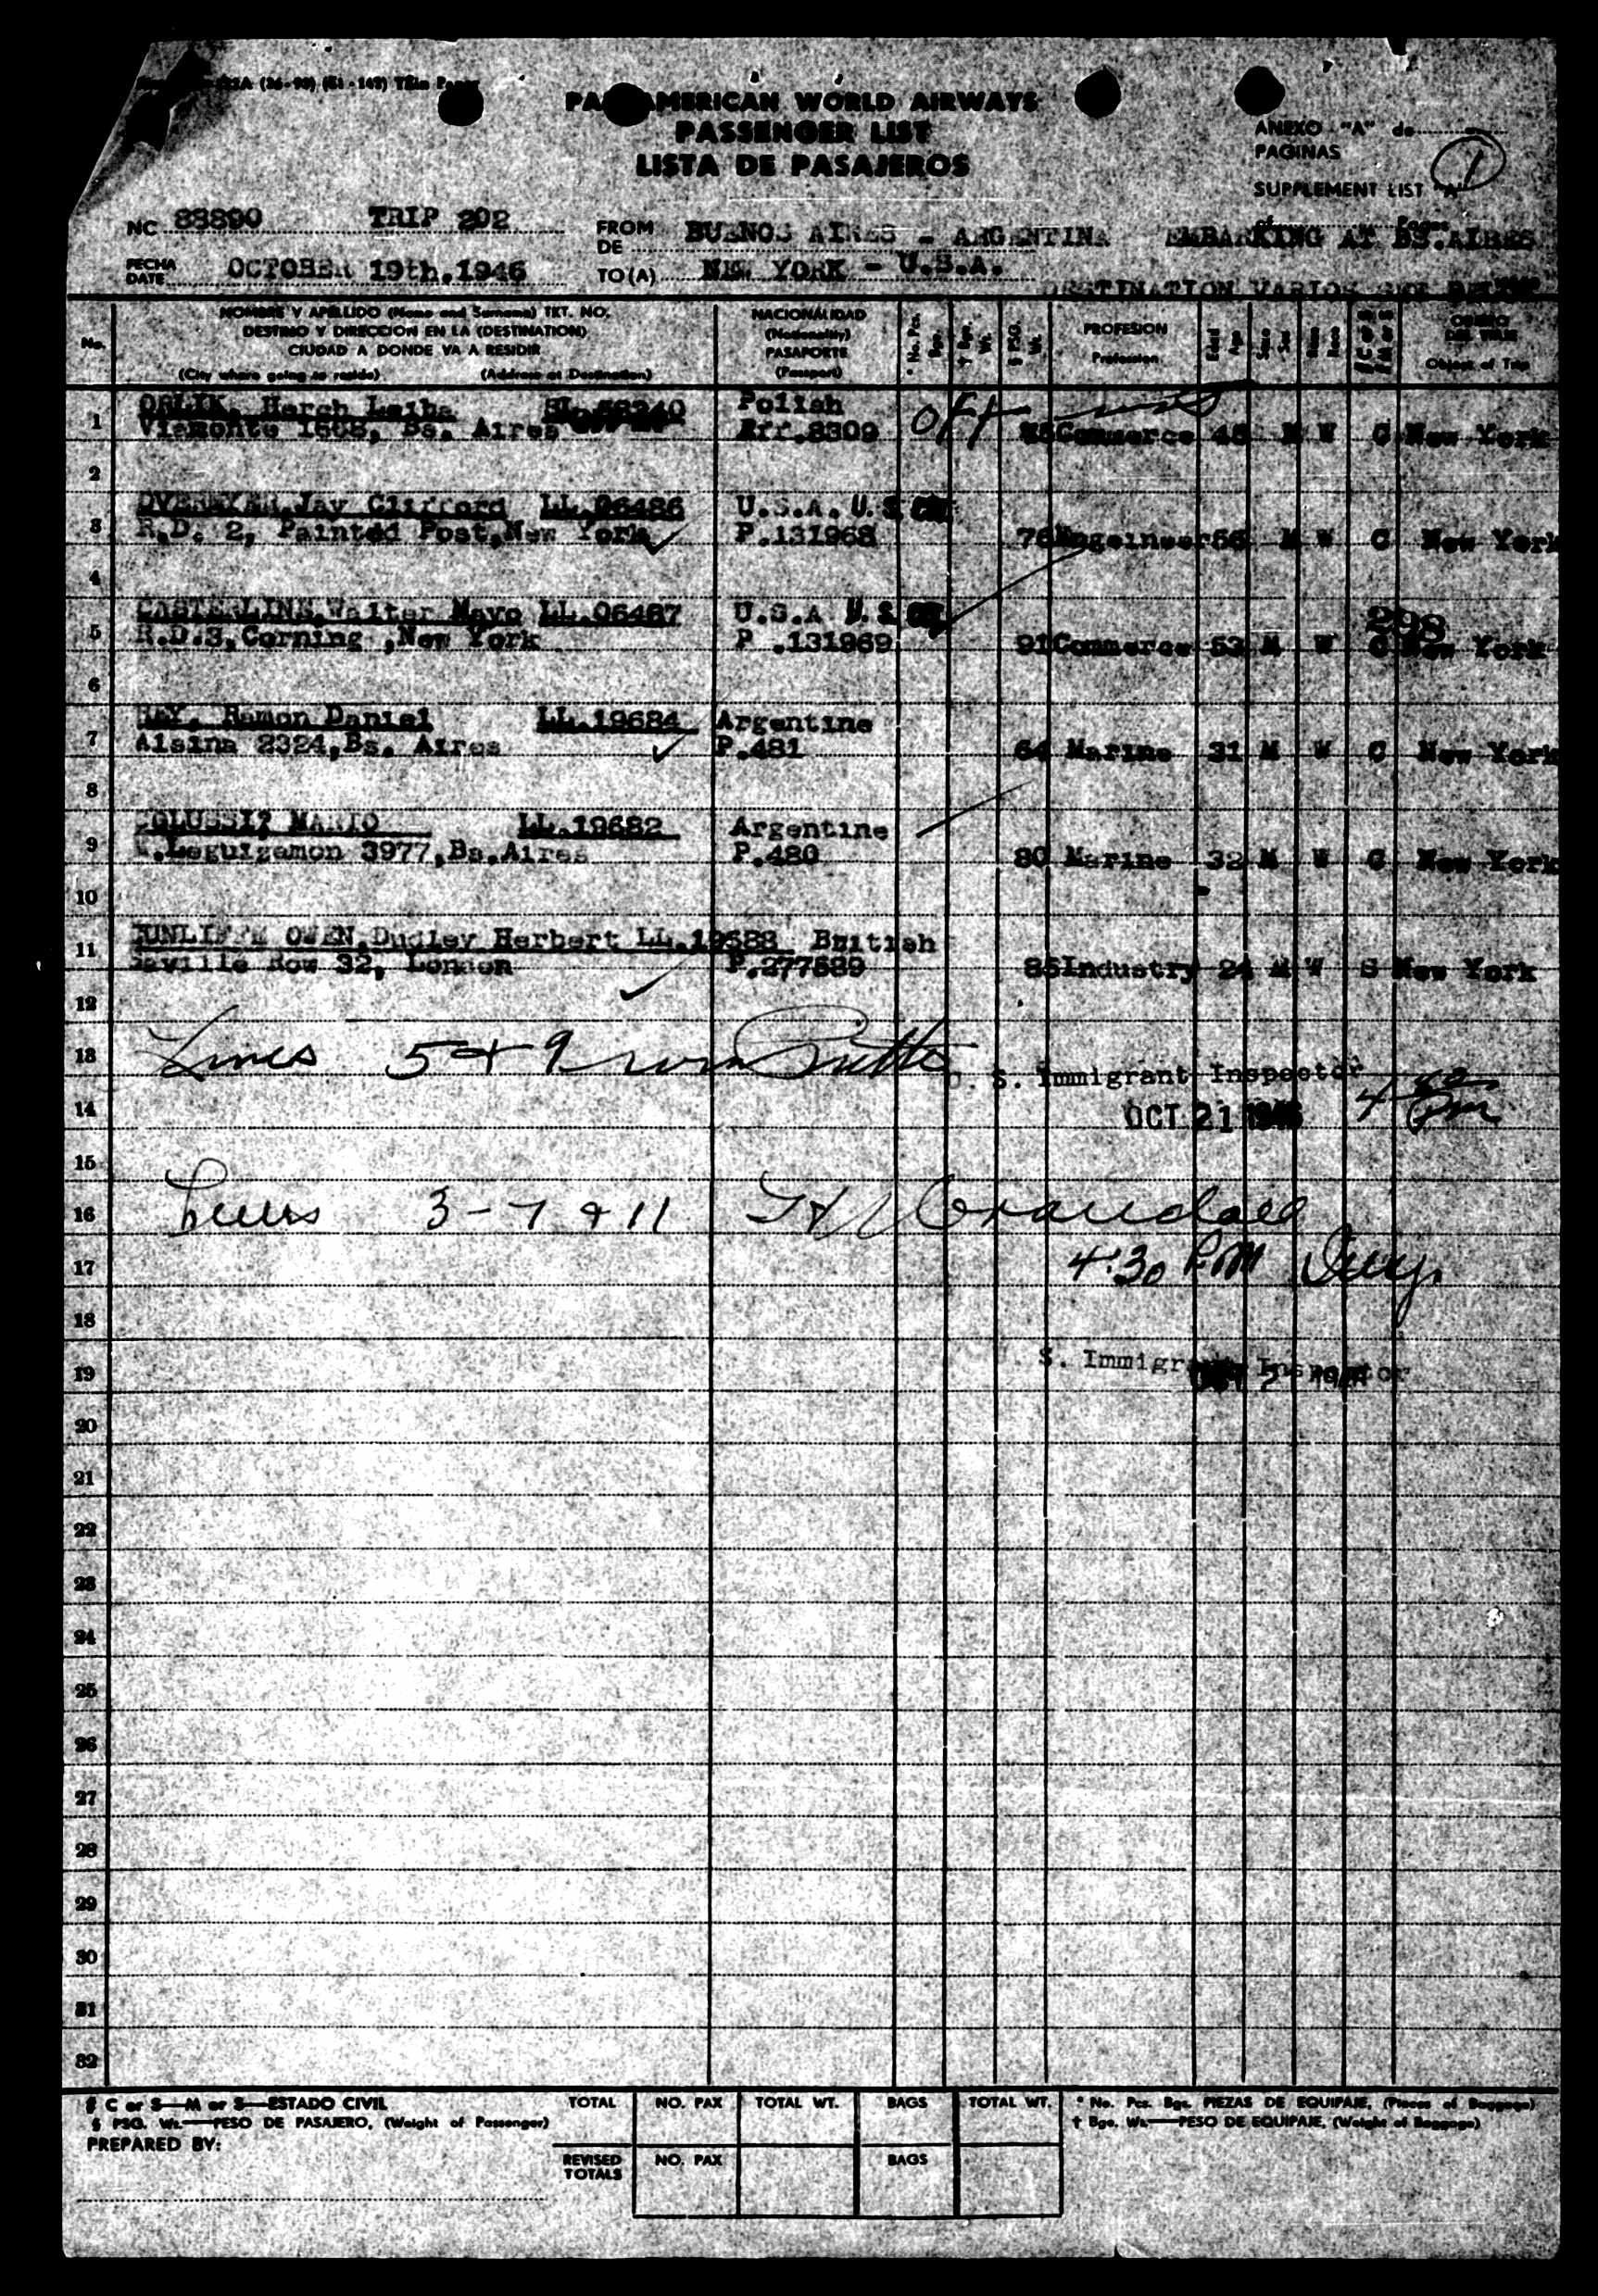 PAN AMERICAN WORLD AIRWAYS
PASSENGER LIST
LISTA DE PASAJEROS
ANEXO "A" de
PAGINAS
1
SUPPLEMENT LIST "A"
of Pages
NC 88890 TRIP 202
FROM DE BUENOS AIRES - ARGENTINA EMBARKING AT BS.AIRES
FECHA DATE OCTOBER 19th.1946
TO (A) NEW YORK - U.S.A.
DESTINATION VARIOS SEE BELOW
No.
NOMBRE Y APELLIDO (Name and Surname) TKT. NO.
DESTINO Y DIRECCION EN LA (DESTINATION)
CIUDAD A DONDE VA A RESIDIR
(City where going to reside) (Address at Destination)
NACIONALIDAD
(Nationality)
PASAPORTE
(Passport)
* No. Pcs. Bgs.
† Bgs. Wt.
§ PSG. Wt.
PROFESION
Profession
Edad Age
Sexo Sex
Raza Race
OBJETO DEL VIAJE
Object of Trip
1 ORLIK, Herch Leiba SL.58240 Polish
Viamonte 1608, Bs. Aires Arr.8309 Off Commerce 48 M W C New York
2
OVERMYER, Jay Clifford LL.06486 U.S.A. U.S.
3 R.D. 2, Painted Post, New York P.131968 76 Engeineer 56 M W C New York
4
CASTERLINE, Walter Mayo LL.06487 U.S.A U.S. 298
5 R.D.3, Corning ,New York P .131969 91 Commerce 53 M W C New York
6
REY, Ramon Daniel LL.19684 Argentine
7 Alsina 2324, Bs. Aires P.481 64 Marine 31 M W C New York
8
COLUSSI, MARIO LL.19682 Argentine
9 Leguizamon 3977, Bs.Aires P.480 80 Marine 32 M W C New York
10
CUNLIFFE OWEN, Dudley Herbert LL.19688 British
11 Saville Row 32, London P.277589 85 Industry 24 M W S New York
12
13 Lines 5 & 9
U. S. Immigrant Inspector
14 OCT 21 1946 4 pm
15
16 Lines 3 - 7 & 11 Crandall
17 4:30 P.M
18
19 S. Immigrant Inspector
20
21
22
23
24
25
26
27
28
29
30
31
32
‡ C or S—M or S—ESTADO CIVIL
§ PSG. Wt.—PESO DE PASAJERO, (Weight of Passenger)
PREPARED BY:
TOTAL NO. PAX TOTAL WT. BAGS TOTAL WT.
REVISED TOTALS NO. PAX BAGS
* No. Pcs. Bgs. PIEZAS DE EQUIPAJE, (Pieces of Baggage)
† Bgs. Wt.—PESO DE EQUIPAJE, (Weight of Baggage)